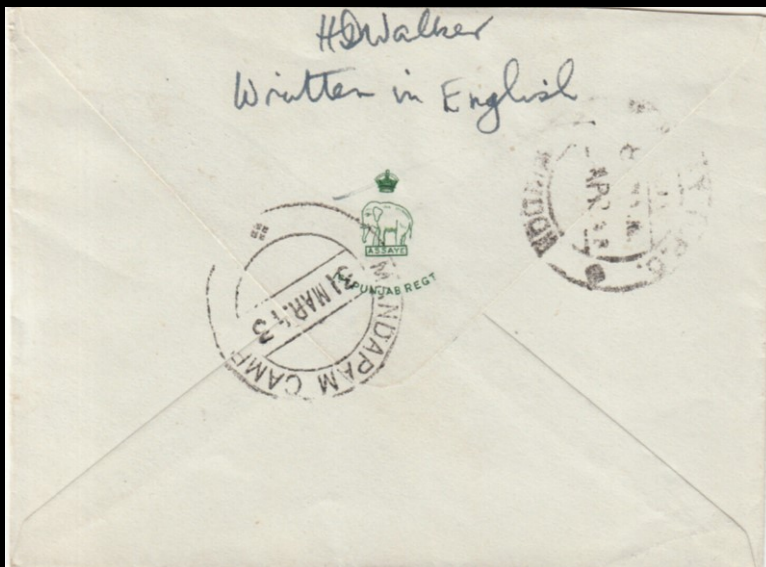 HDWalker
Written in English
ASSAYE
PUNJAB REGT
MANDAPAM CAMP
31 MAR.43
APR 43